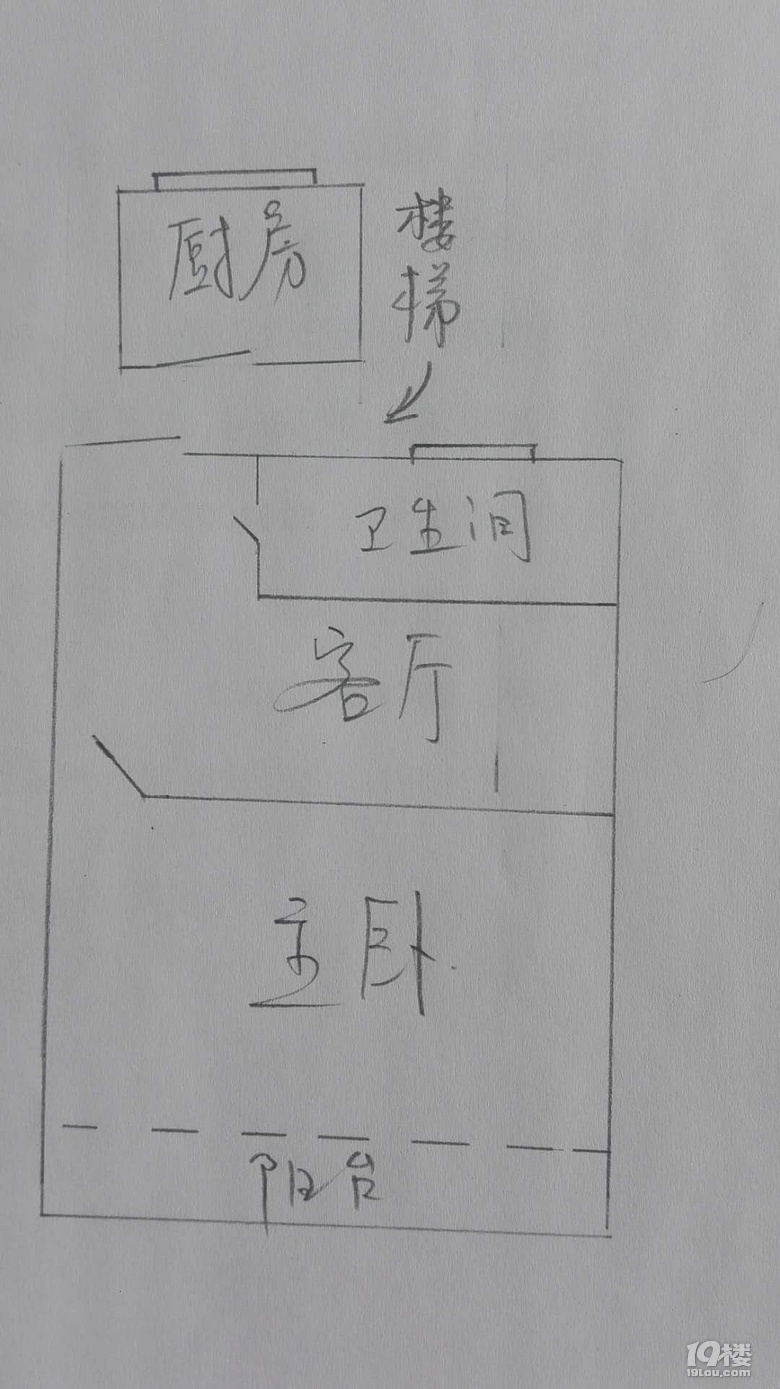 厨房
楼梯
卫生间
客厅
主卧
阳台
19楼
19lou.com